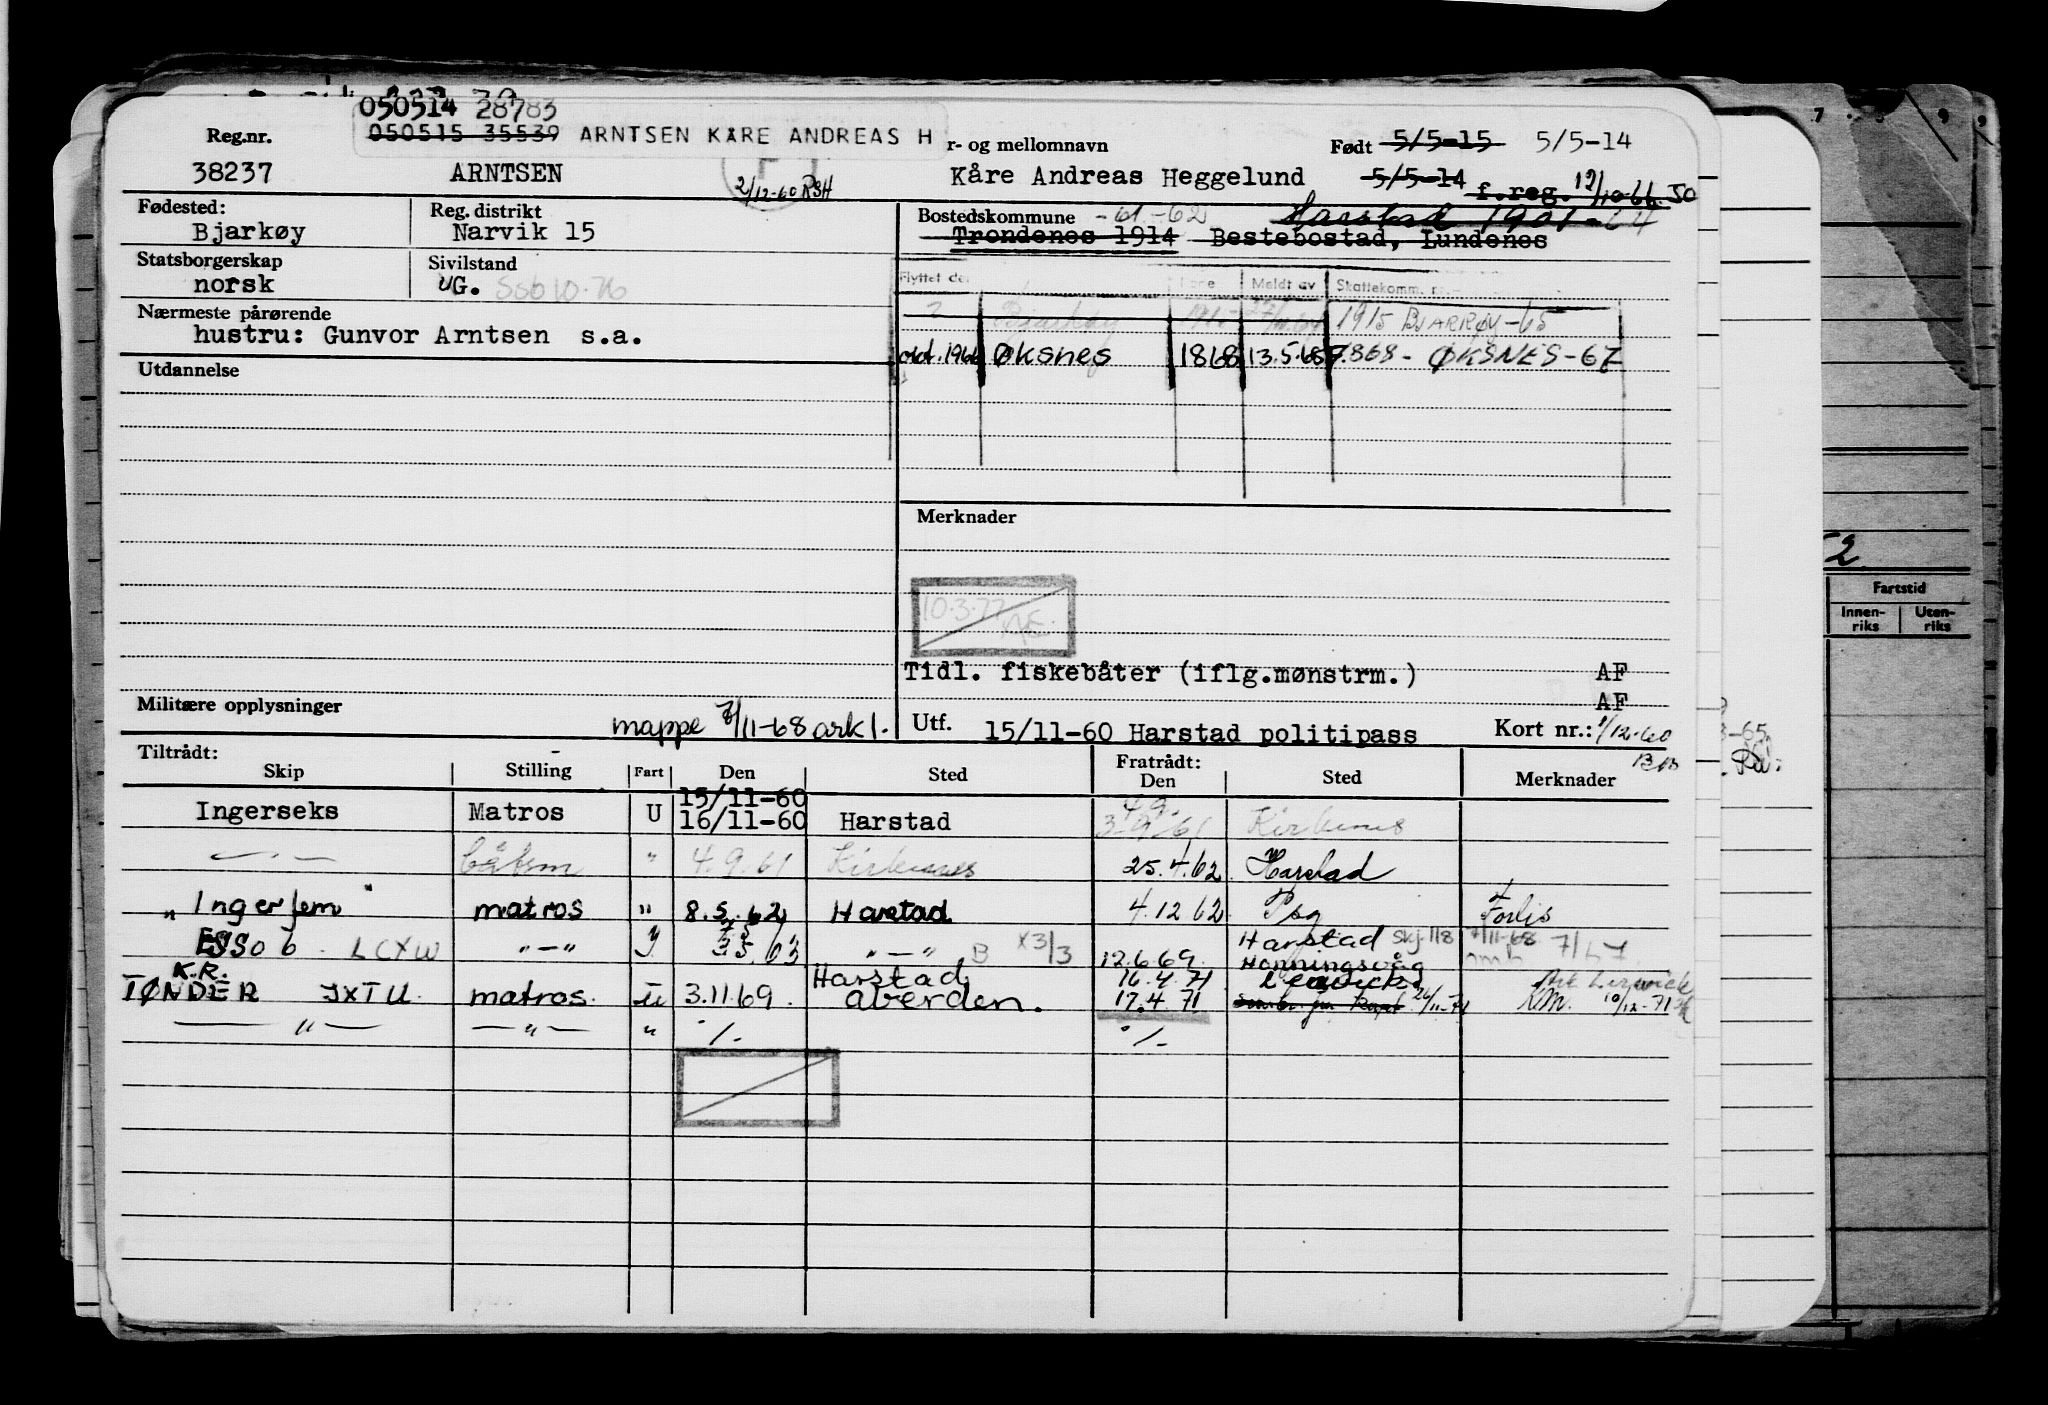 050514 28783
050515 35539 ARNTSEN KÅRE ANDREAS H
Reg.nr. r- og mellomnavn Født 5/5-15 5/5-14
38237 ARNTSEN Kåre Andreas Heggelund 5/5-14 f.reg. 12/10-66 JO
2/12-60 RSH
Fødested: Reg. distrikt Bostedskommune -61-62 Harstad 1901-64
Bjarkøy Narvik 15 Trondenes 1914 Bestebostad, Lundenes
Statsborgerskap Sivilstand
norsk UG.
Flyttet Meldt av Skattekomm.
Nærmeste pårørende
hustru: Gunvor Arntsen s.a.
Bjarkøy 1915 BJARKØY-65
okt. 1966 Øksnes 1868 13.5.68 1868- ØKSNES-67
Utdannelse
Merknader
10.3.77
Tidl. fiskebåter (iflg.mønstrm.) AF
AF
Militære opplysninger mappe 7/11-68 ark 1.
Utf. 15/11-60 Harstad politipass Kort nr.: 1/12-60
Tiltrådt: Fratrådt:
Skip Stilling Fart Den Sted Den Sted Merknader
15/11-60
Ingerseks Matros U 16/11-60 Harstad 3.9.61 4.9. Kirkenes
— " — båtsm " 4.9.61 Kirkenes 25.4.62 Harstad
" Ingerfem " matros " 8.5.62 Harstad 4.12.62 Psg Forlis
ESSO 6 LCXW " — " 3.5.63 " — " B x3/3 12.6.69 Harstad Skj.118 7/11-68 7/67
Honningsvåg
K.R.
TØNDER JXTU. matros. U 3.11.69. Harstad 16.4.71 Lerwick
aberden. 17.4.71 24/11-71 10/12-71
— " — — " — " ·/- ·/-
52
Fartstid
Innen-
riks
Uten-
riks